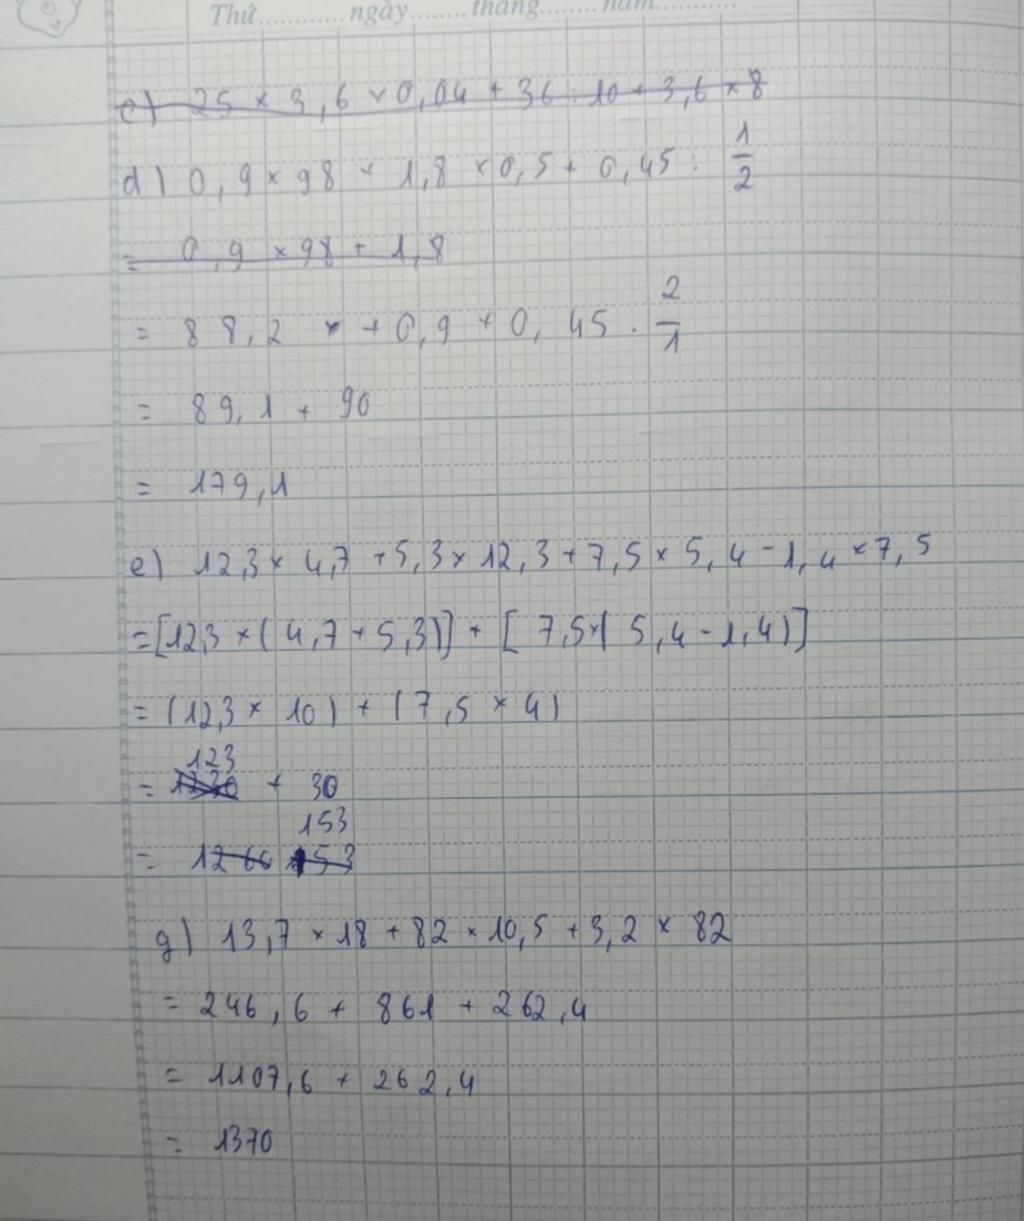 Thứ............ngày........tháng........năm............
c) 25 × 3,6 × 0,04 + 36 . 10 + 3,6 × 8
d) 0,9 × 98 + 1,8 × 0,5 + 0,45 : 1/2
= 0,9 × 98 + 1,8
= 88,2 + 0,9 + 0,45 . 2/1
= 89,1 + 90
= 179,1
e) 12,3 × 4,7 + 5,3 × 12,3 + 7,5 × 5,4 - 1,4 × 7,5
= [12,3 × (4,7 + 5,3)] + [7,5 × (5,4 - 1,4)]
= (12,3 × 10) + (7,5 × 4)
123
= 1230 + 30
153
= 1266 153
g) 13,7 × 18 + 82 × 10,5 + 3,2 × 82
= 246,6 + 861 + 262,4
= 1107,6 + 262,4
= 1370